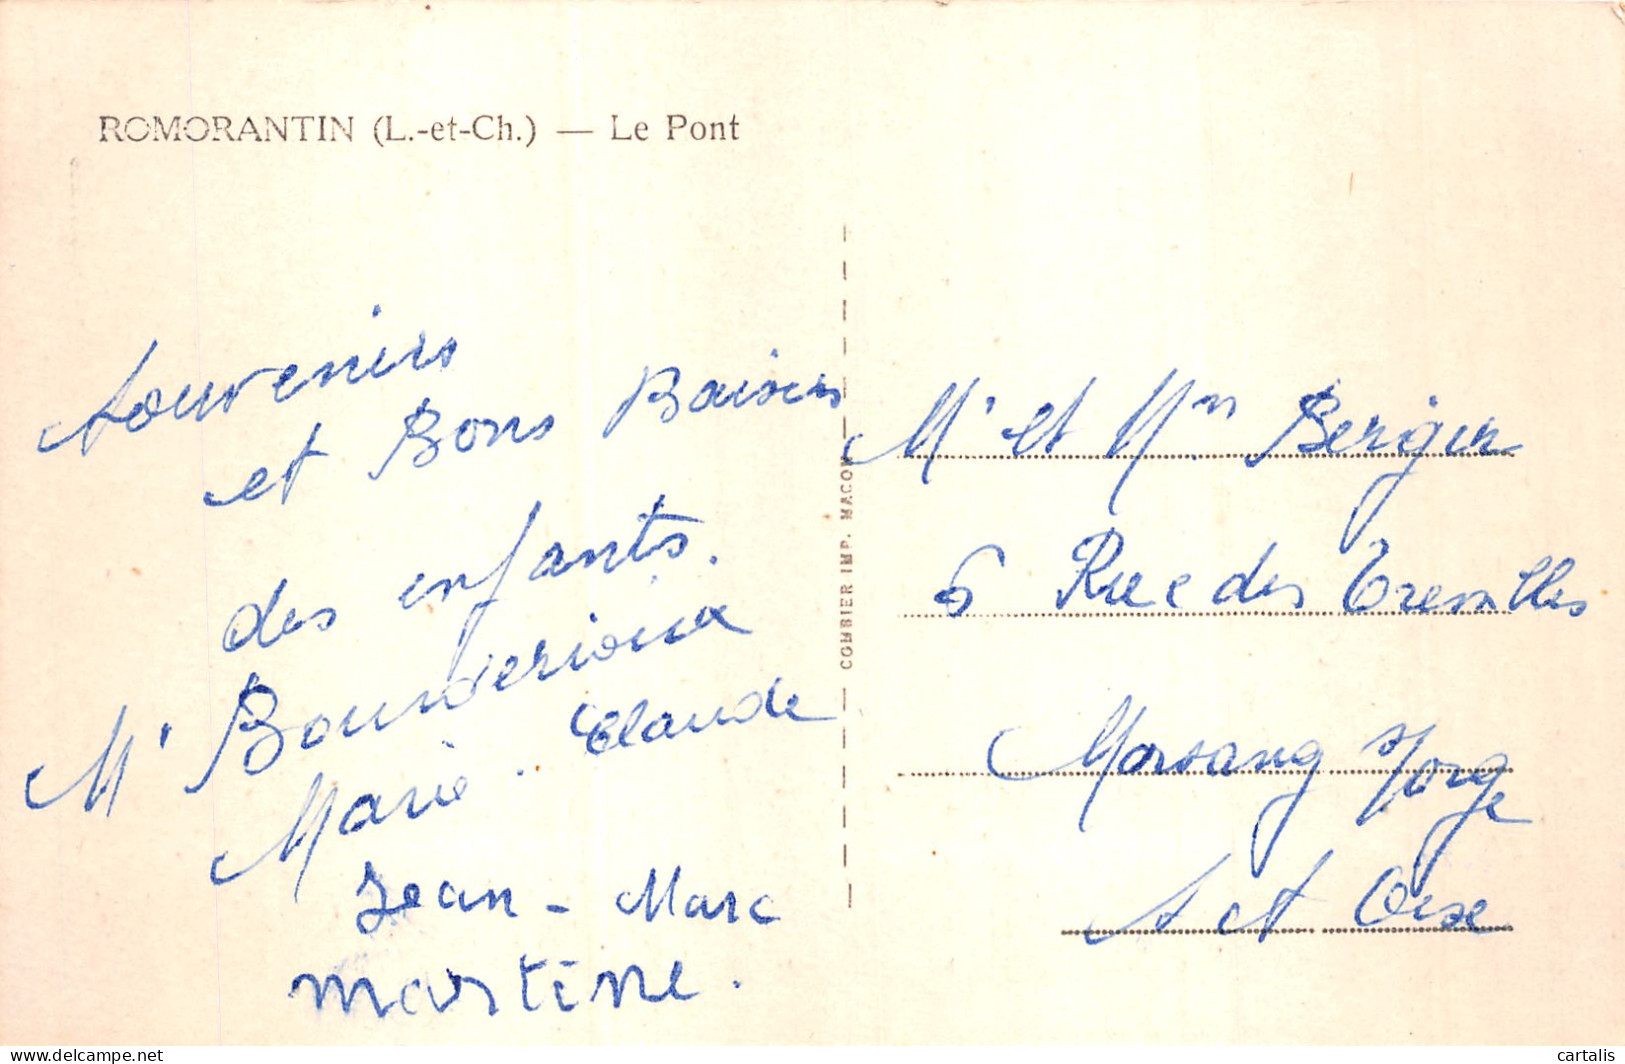 ROMORANTIN (L.-et-Ch.) — Le Pont
Souvenirs
et Bons Baisers
des enfants.
Mr
Marie-Claude
Jean-Marc
martine.
COMBIER IMP. MACON
Mr et Mm Berger
6 Rue des
Morsang s/orge
S et Oise
cartalis
www.delcampe.net